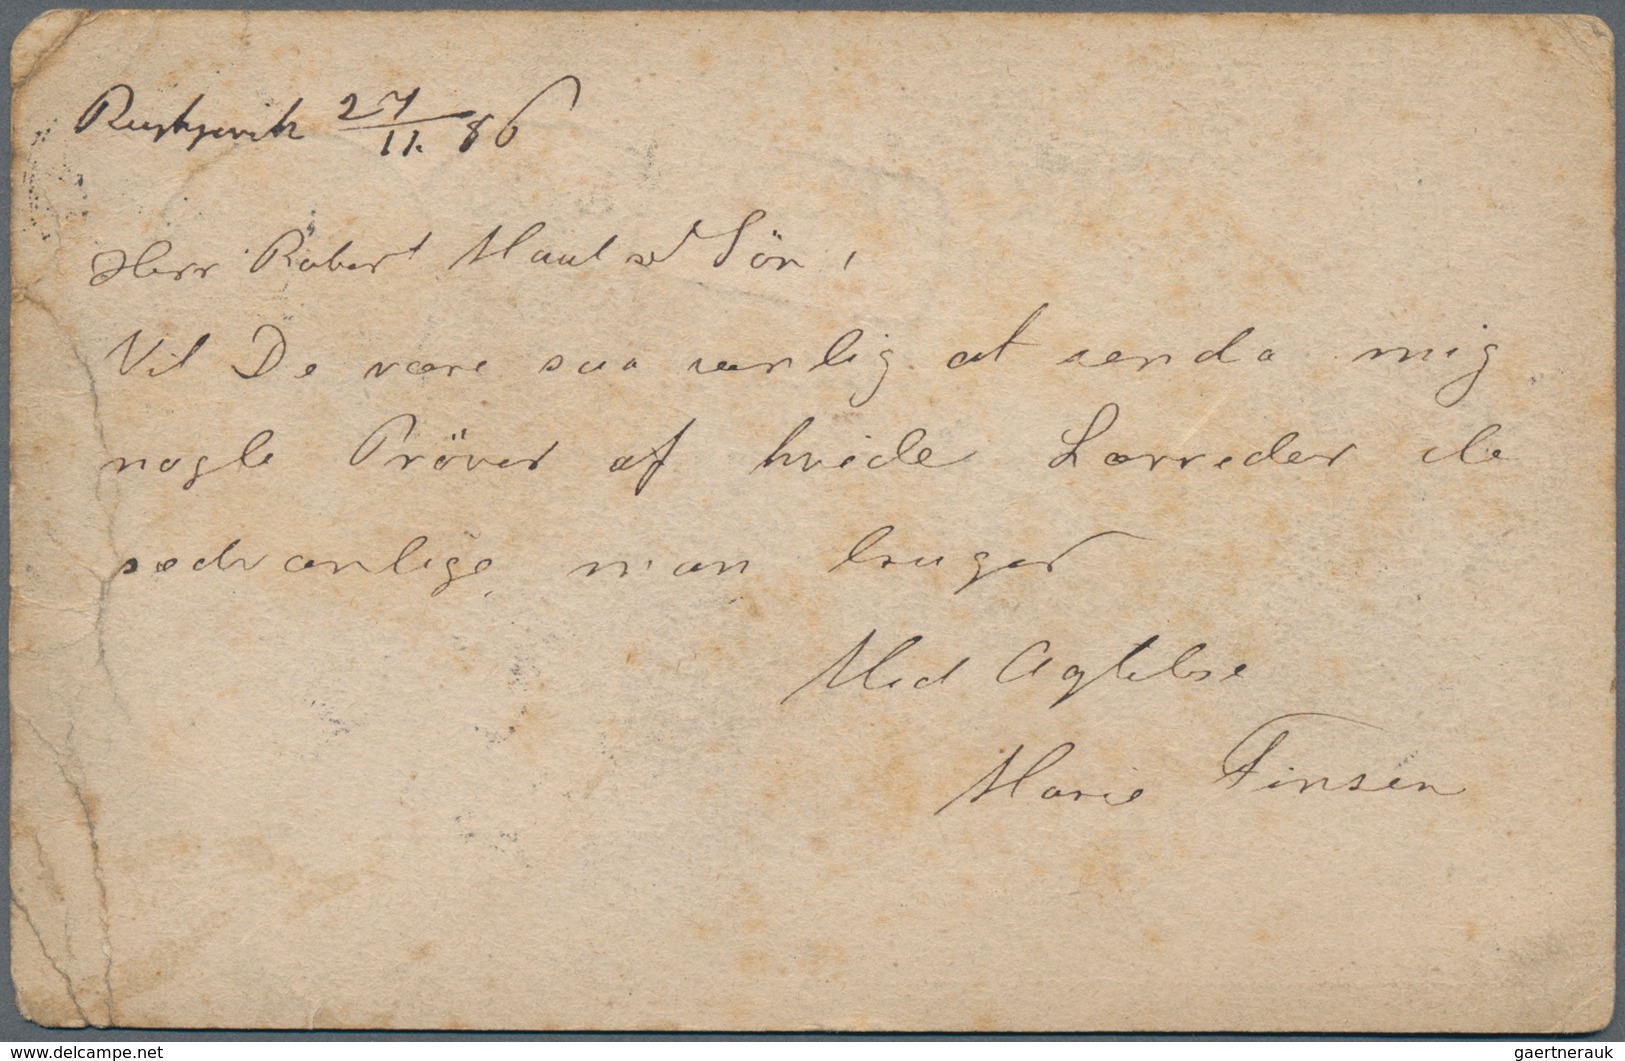 Reykjavik 27/11. 86
Herr Robert Sön,
Vil De være saa venlig at sende mig
nogle Pröver af hvide Lærreder de
sædvanlige man bruger
Med Agtelse
Marie Finsen
www.delcampe.net
gaertnerauk